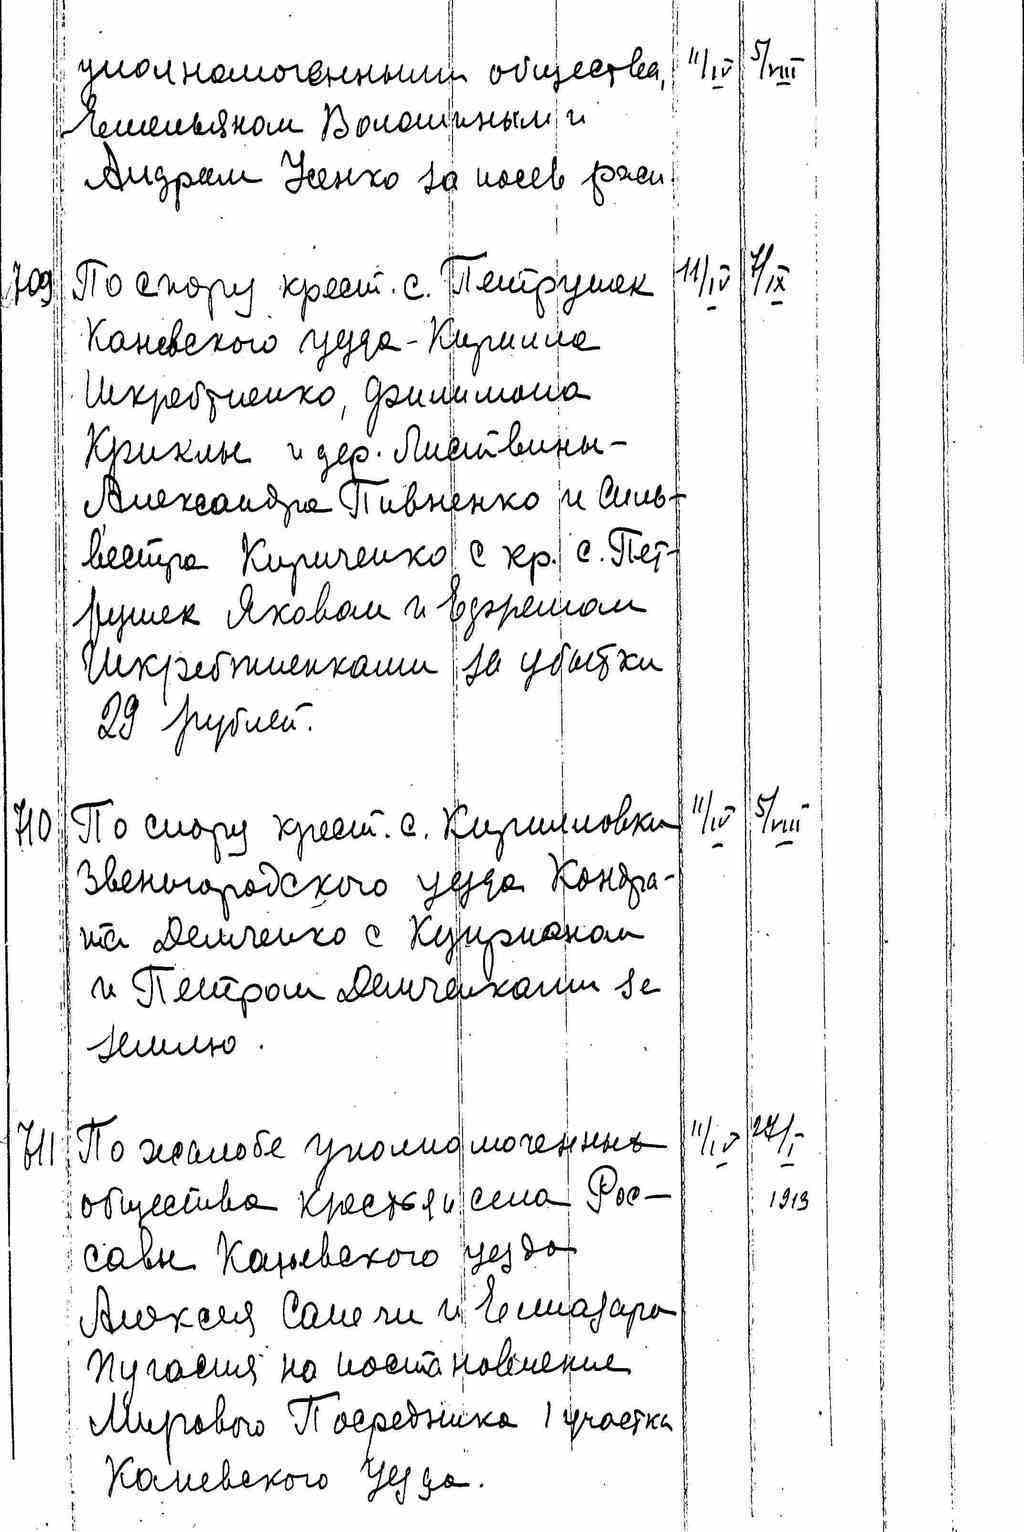 уполномоченными общества, 11/IV 5/VIII
Емельяном Волошиным и
Андреем Усенко за посев расп.
709 По спору крест. с. Петрушек 11/IV 7/IX
Каневского уезда - Кирилла
Шкребтиенко, Филимона
Криклы и дер. Листвины -
Александра Пивненко и Силь-
вестра Кириченко с кр. с. Пет-
рушек Яковом и Ефремом
Шкребтиенками за убытки
29 рублей.
710 По спору крест. с. Кирилловки 11/IV 5/VIII
Звенигородского уезда Кондра-
та Демченко с Куприяном
и Петром Демченками за
землю.
711 По жалобе уполномоченных 11/IV 27/I
общества крестьян села Рос- 1913
савы Каневского уезда
Алексея и Елиазара
на постановление
Мирового Посредника 1 участка
Каневского Уезда.